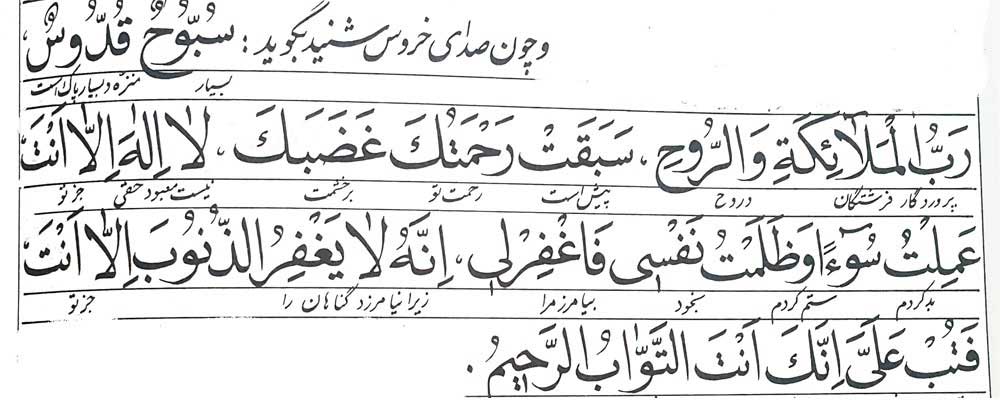 و چون صدای خروس شنید بگوید : سُبُّوحٌ قُدُّوسٌ
بسیار منزّه و بسیار پاک است
رَبُّ الْمَلَائِكَةِ وَالرُّوحِ ، سَبَقَتْ رَحْمَتُكَ غَضَبَكَ ، لَا اِلٰهَ اِلَّا اَنْتَ
پروردگار فرشتگان و روح پیش است رحمت تو بر خشمت نیست معبود حقی جز تو
عَمِلْتُ سُوٓءًا وَظَلَمْتُ نَفْسِی فَاغْفِرْلِی ، اِنَّهُ لَا یَغْفِرُ الذُّنُوبَ اِلَّا اَنْتَ
بد کردم ستم کردم بخود بیامرز مرا زیرا نیامرزد گناهان را جز تو
فَتُبْ عَلَیَّ اِنَّكَ اَنْتَ التَّوَّابُ الرَّحِیمُ .